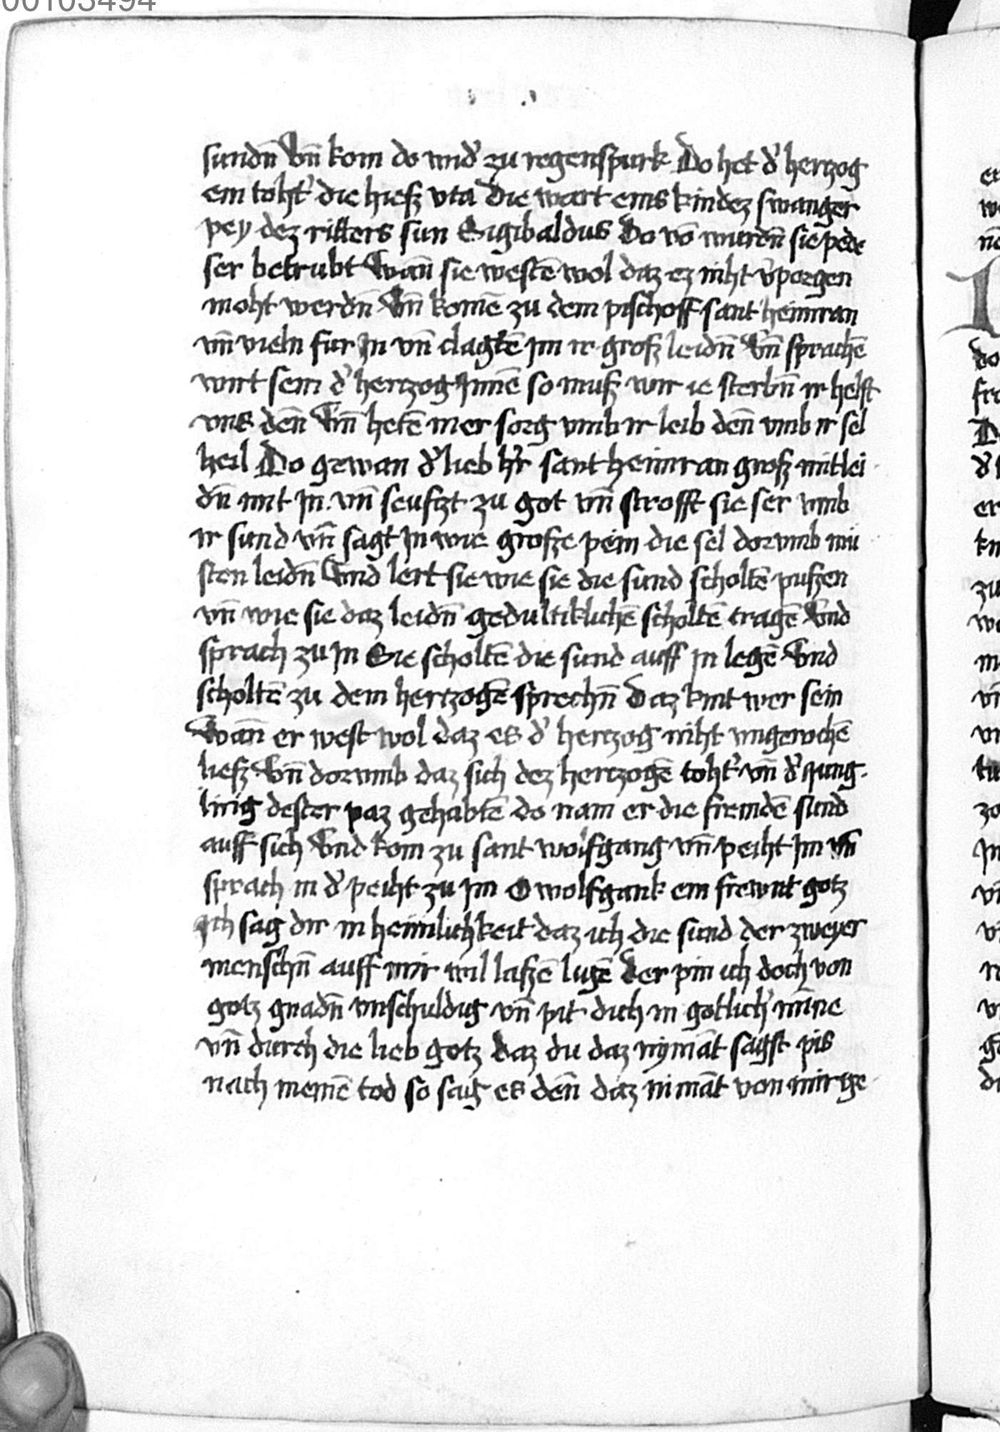 00103494
sundñ Vñ kom do wid' zu regenspurk Do het d' hertzog
ein toht' die hiesz vta Die wart eins kindez swanger
pey dez ritters sun Sigibaldus Do vō wurdñ sie pede
ser betrubt Wañ sie westē wol daz ez niht v'porgen
moht werdñ Vñ komē zu dem pischoff sant heimran
vñ vieln fur Jn vñ clagtē jm ir grosz leidñ Vñ sprachē
wirt sein d' hertzog Jnnē so musz wir ie sterbñ ir helft
vns deñ Vñ hetē mer sorg vmb ir leib deñ vmb ir sel
heil Do gewan d' lieb h'r sant heimran grosz mitlei
dñ mit Jn. vñ seufzt zu got vñ strofft sie ser vmb
ir sund vñ sagt Jn wie grosze pein die sel dorvmb mü
sten leidñ Vnd lert sie wie sie die sund scholtē puszen
vñ wie sie daz leidñ gedultiklichē scholtē tragē Vnd
sprach zu Jn Sie scholtē die sund auff jn legē Vnd
scholtē zu dem hertzogē sprechñ Daz kint wer sein
Wañ er west wol daz es d' hertzog niht vngerochē
liesz Vñ dorvmb daz sich dez hertzogē toht' vñ d' Jung-
linig dester paz gehabtē do nam er die fremdē sund
auff sich Vnd kom zu sant wolfgang vñ peiht Jm vñ
sprach in d' peiht zu jm O wolfgank ein frewnt gotz
Jch sag dir in heimlichkeit daz ich die sund der zweyer
menschñ auff mir wil laszē ligē Der pin ich doch von
gotz gnadñ vnschuldig vñ pit dich in gotlich' minne
vñ durch die lieb gotz daz du daz nymāt sagst pis
nach meinē tod so sag es deñ daz nimāt von mir ge